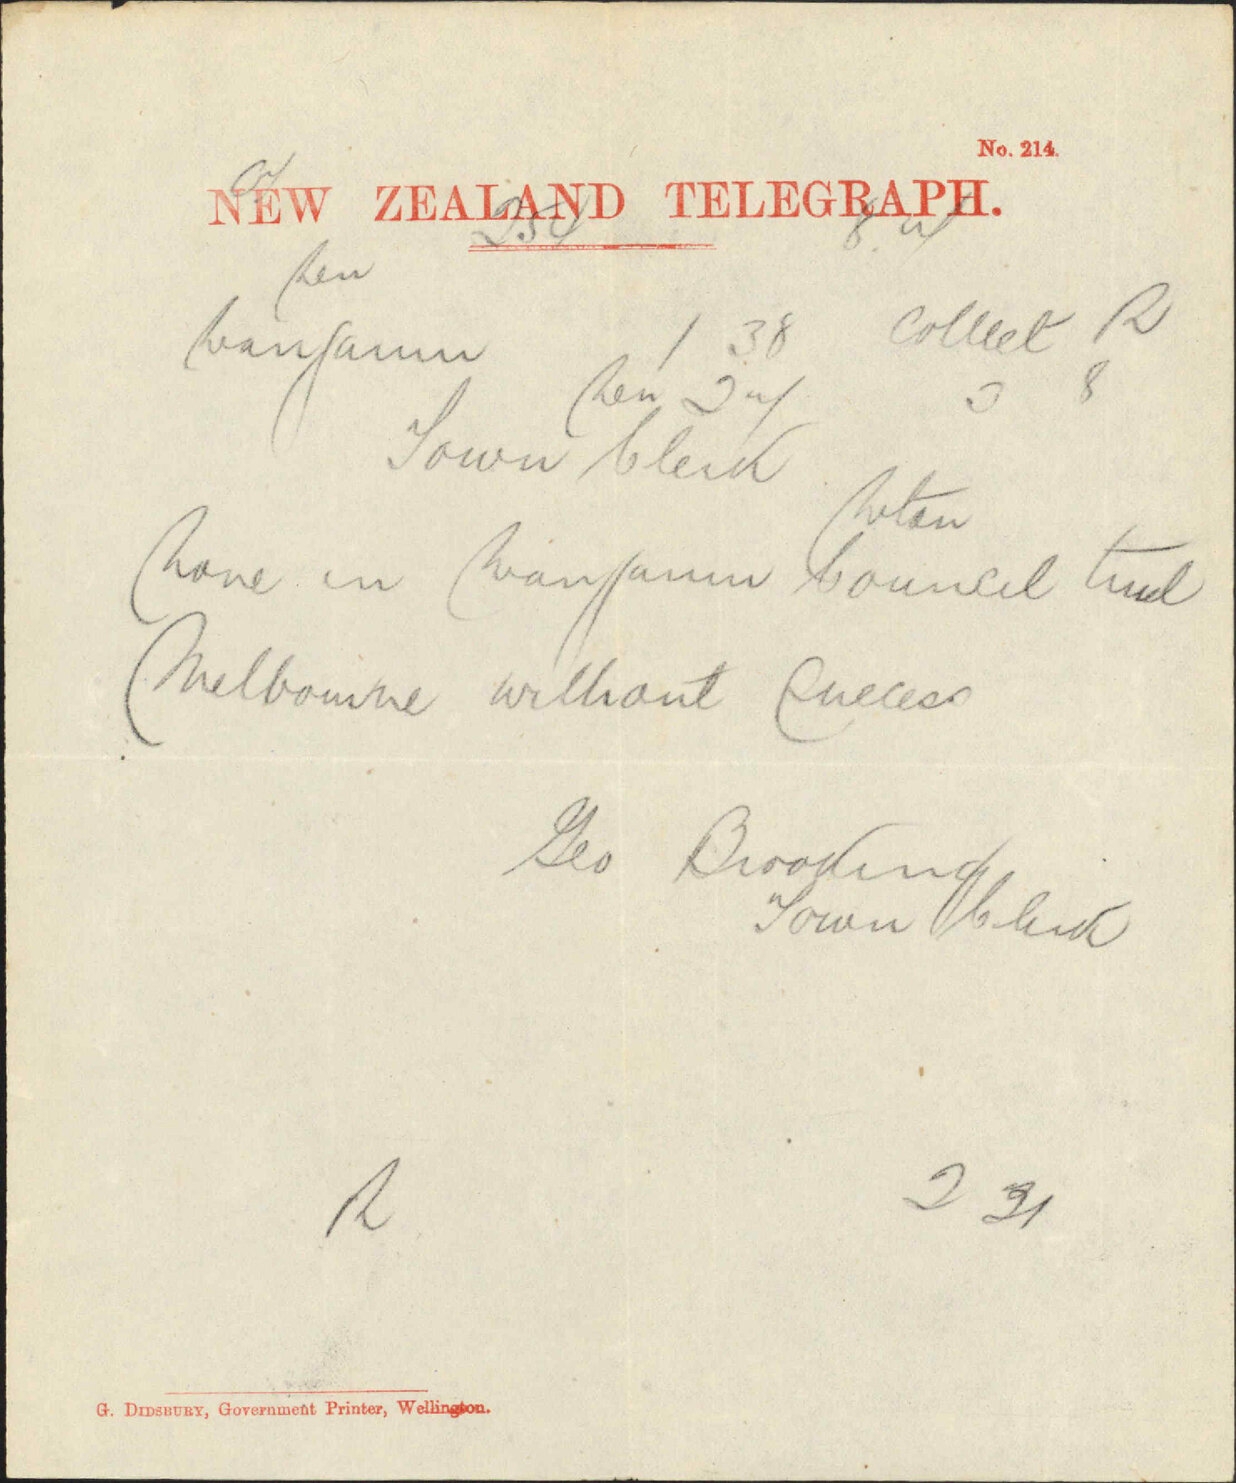 No. 214.
NEW ZEALAND TELEGRAPH.
254
Wanganui 1 38 Collect R
3 8
Town Clerk
Wtau
None in Wanganui Council tried
Melbourne without Success
Geo Brooking
Town Clerk
R 2 31
G. DIDSBURY, Government Printer, Wellington.